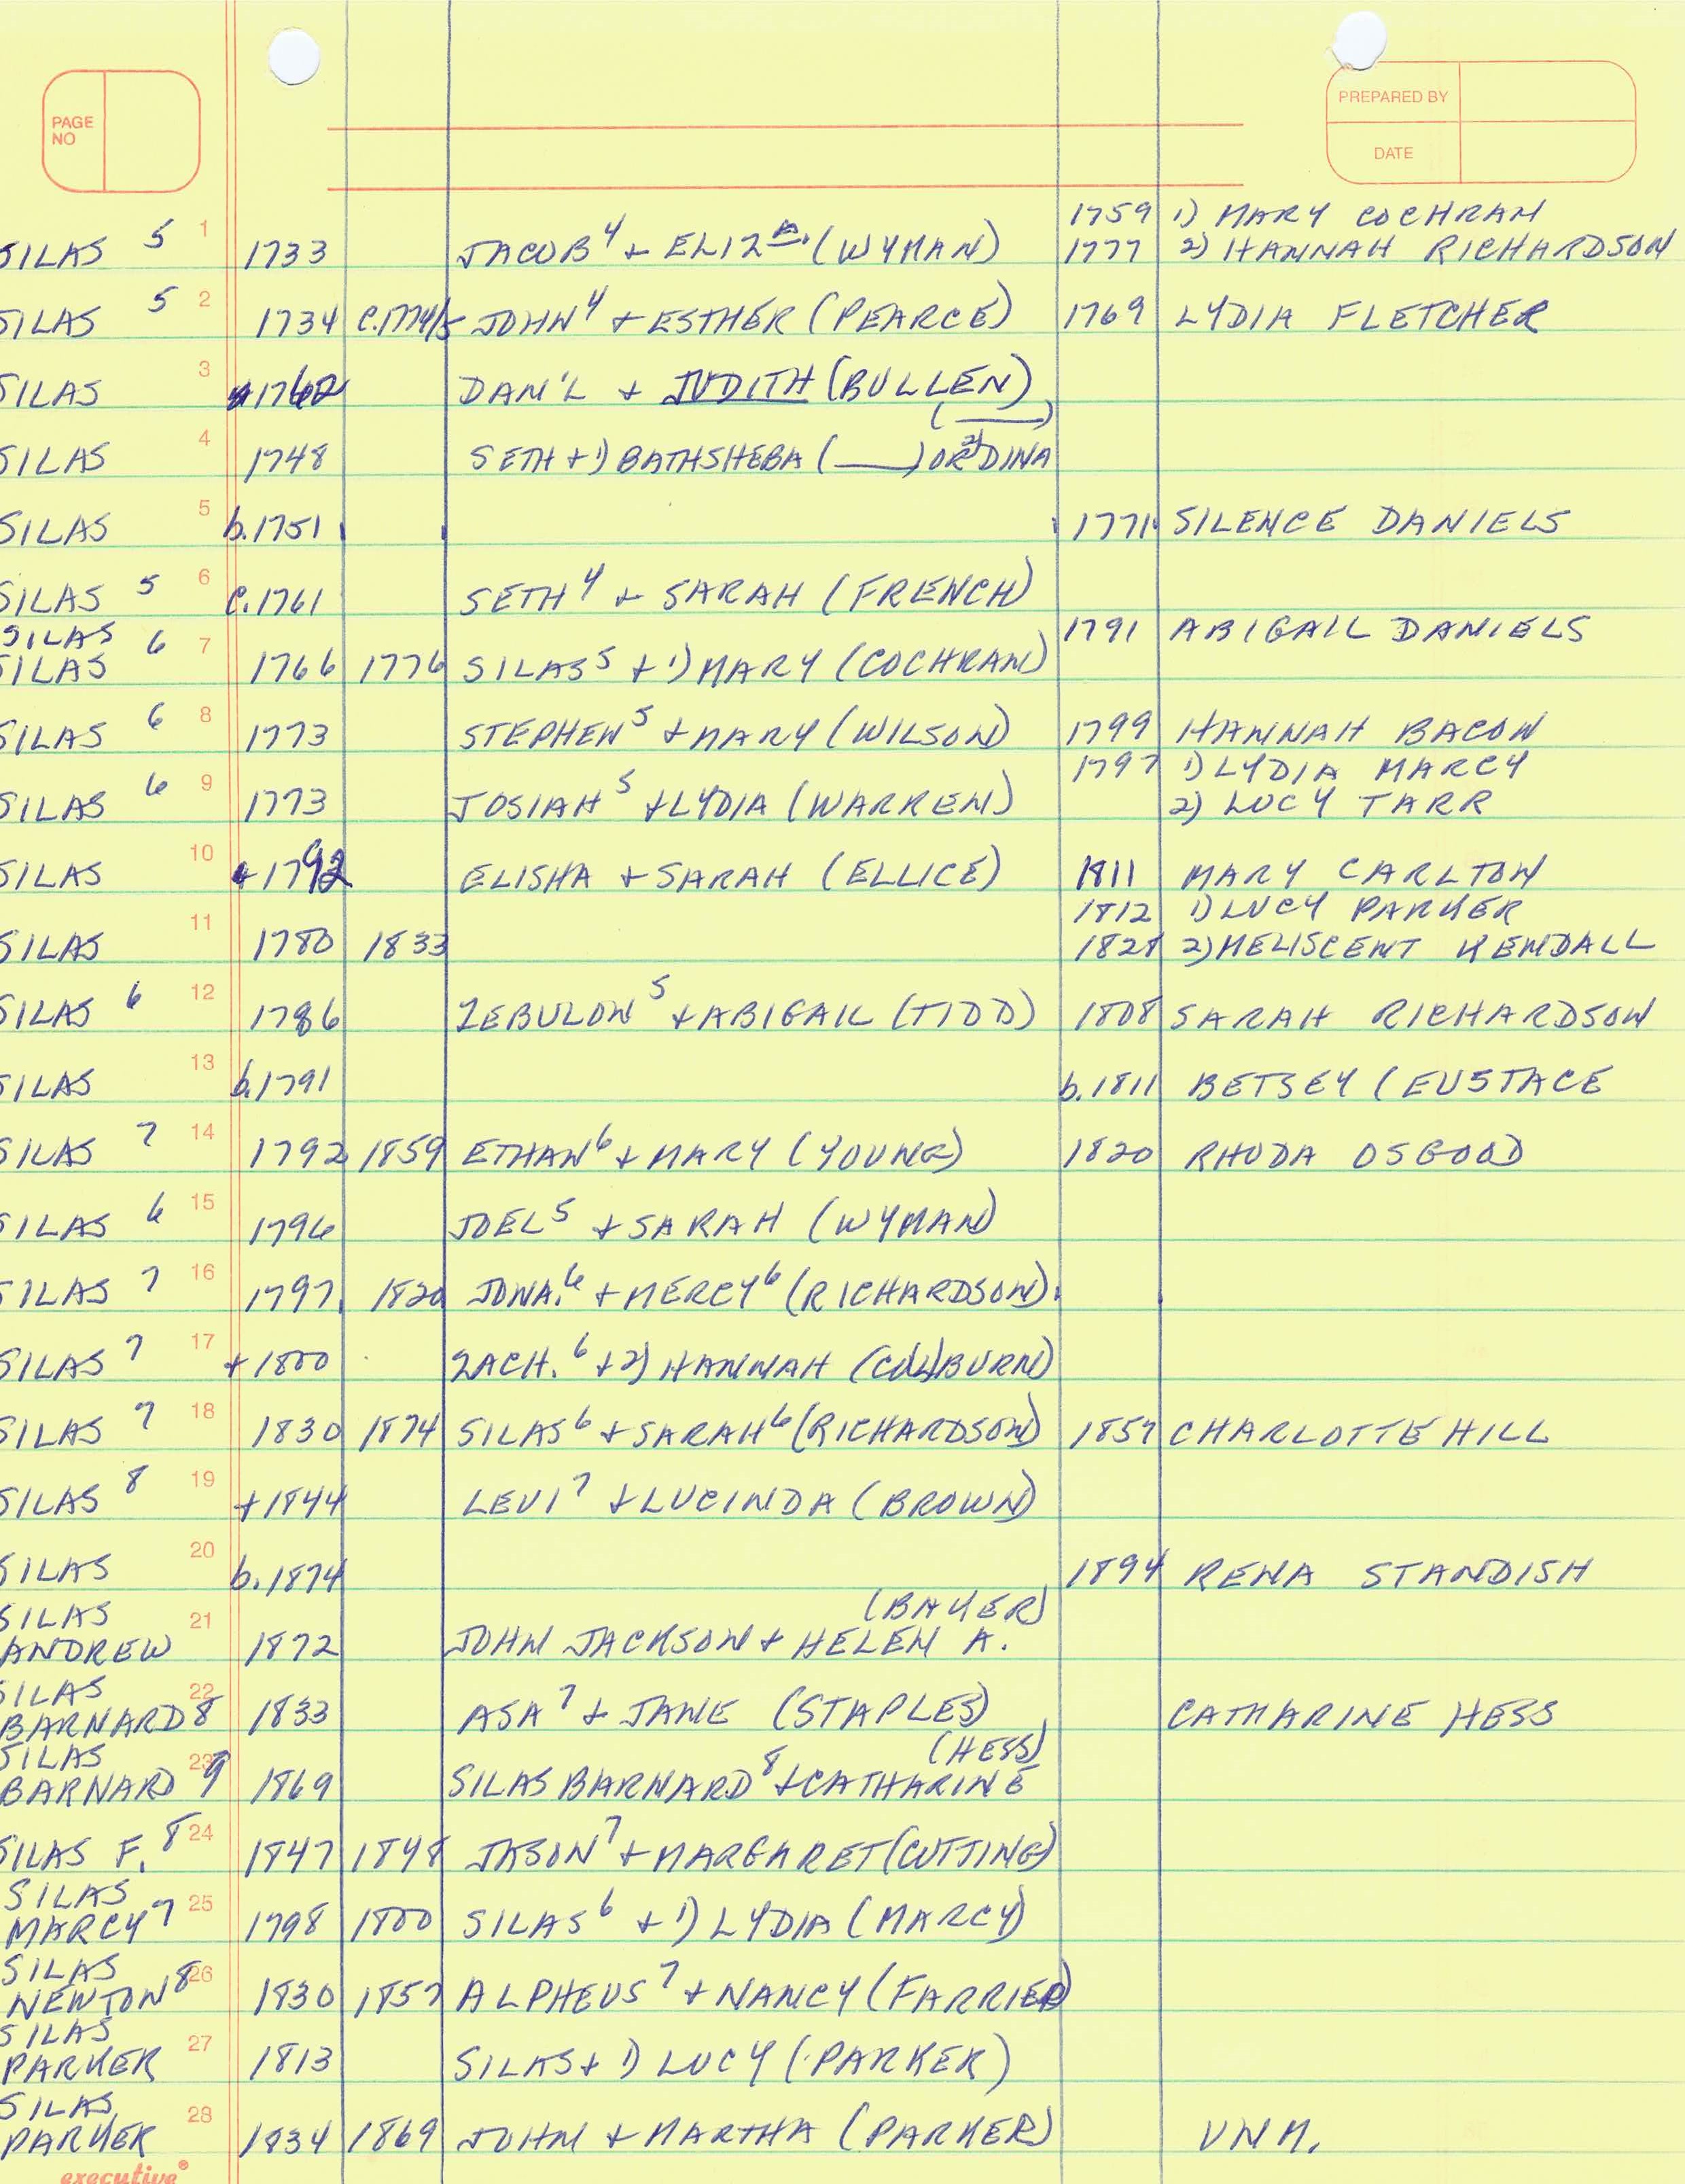 PAGE NO
PREPARED BY
DATE
1759 1) MARY COCHRAN
SILAS 5 1 1733 JACOB4 + ELIZ.(WYMAN) 1777 2) HANNAH RICHARDSON
SILAS 5 2 1734 C.1774/5 JOHN4 + ESTHER (PEARCE) 1769 LYDIA FLETCHER
SILAS 3 DAN'L + JUDITH (BULLEN)
(____)
SILAS 4 1748 SETH + 1) BATHSHEBA (____) OR 2) DINA
SILAS 5 b.1751 1771 SILENCE DANIELS
SILAS 5 6 C.1761 SETH4 + SARAH (FRENCH)
SILAS 1791 ABIGAIL DANIELS
SILAS 6 7 1766 1776 SILAS5 + 1) MARY (COCHRAN)
SILAS 6 8 1773 STEPHEN5 + MARY (WILSON) 1799 HANNAH BACON
1797 1) LYDIA MARCY
SILAS 6 9 1773 JOSIAH5 + LYDIA (WARREN) 2) LUCY TARR
SILAS 10 + 1792 ELISHA + SARAH (ELLICE) 1811 MARY CARLTON
1812 1) LUCY PARKER
SILAS 11 1780 1833 1828 2) MELISCENT KENDALL
SILAS 6 12 1786 ZEBULON5 + ABIGAIL (TIDD) 1808 SARAH RICHARDSON
SILAS 13 b.1791 b.1811 BETSEY (EUSTACE
SILAS 7 14 1792 1859 ETHAN6 + MARY (YOUNG) 1820 RHODA OSGOOD
SILAS 6 15 1796 JOEL5 + SARAH (WYMAN)
SILAS 7 16 1797 1820 JONA.6 + MERCY6 (RICHARDSON)
SILAS 7 17 + 1800 ZACH.6 + 2) HANNAH (COL)BURN)
SILAS 7 18 1830 1874 SILAS6 + SARAH6 (RICHARDSON) 1857 CHARLOTTE HILL
SILAS 8 19 + 1844 LEVI7 + LUCINDA (BROWN)
SILAS 20 b.1874 1894 RENA STANDISH
SILAS (BAKER)
ANDREW 21 1872 JOHN JACKSON + HELEN A.
SILAS
BARNARD 8 22 1833 ASA7 + JANE (STAPLES) CATHARINE HESS
SILAS (HESS)
BARNARD 9 23 1869 SILAS BARNARD8 + CATHARINE
SILAS F. 8 24 1847 1848 JASON7 + MARGARET (CUTTING)
SILAS
MARCY 7 25 1798 1800 SILAS6 + 1) LYDIA (MARCY)
SILAS
NEWTON 8 26 1830 1857 ALPHEUS7 + NANCY (FARRIER)
SILAS
PARKER 27 1813 SILAS + 1) LUCY (PARKER)
SILAS
PARKER 28 1834 1869 JOHN + MARTHA (PARKER) UNM.
executive®